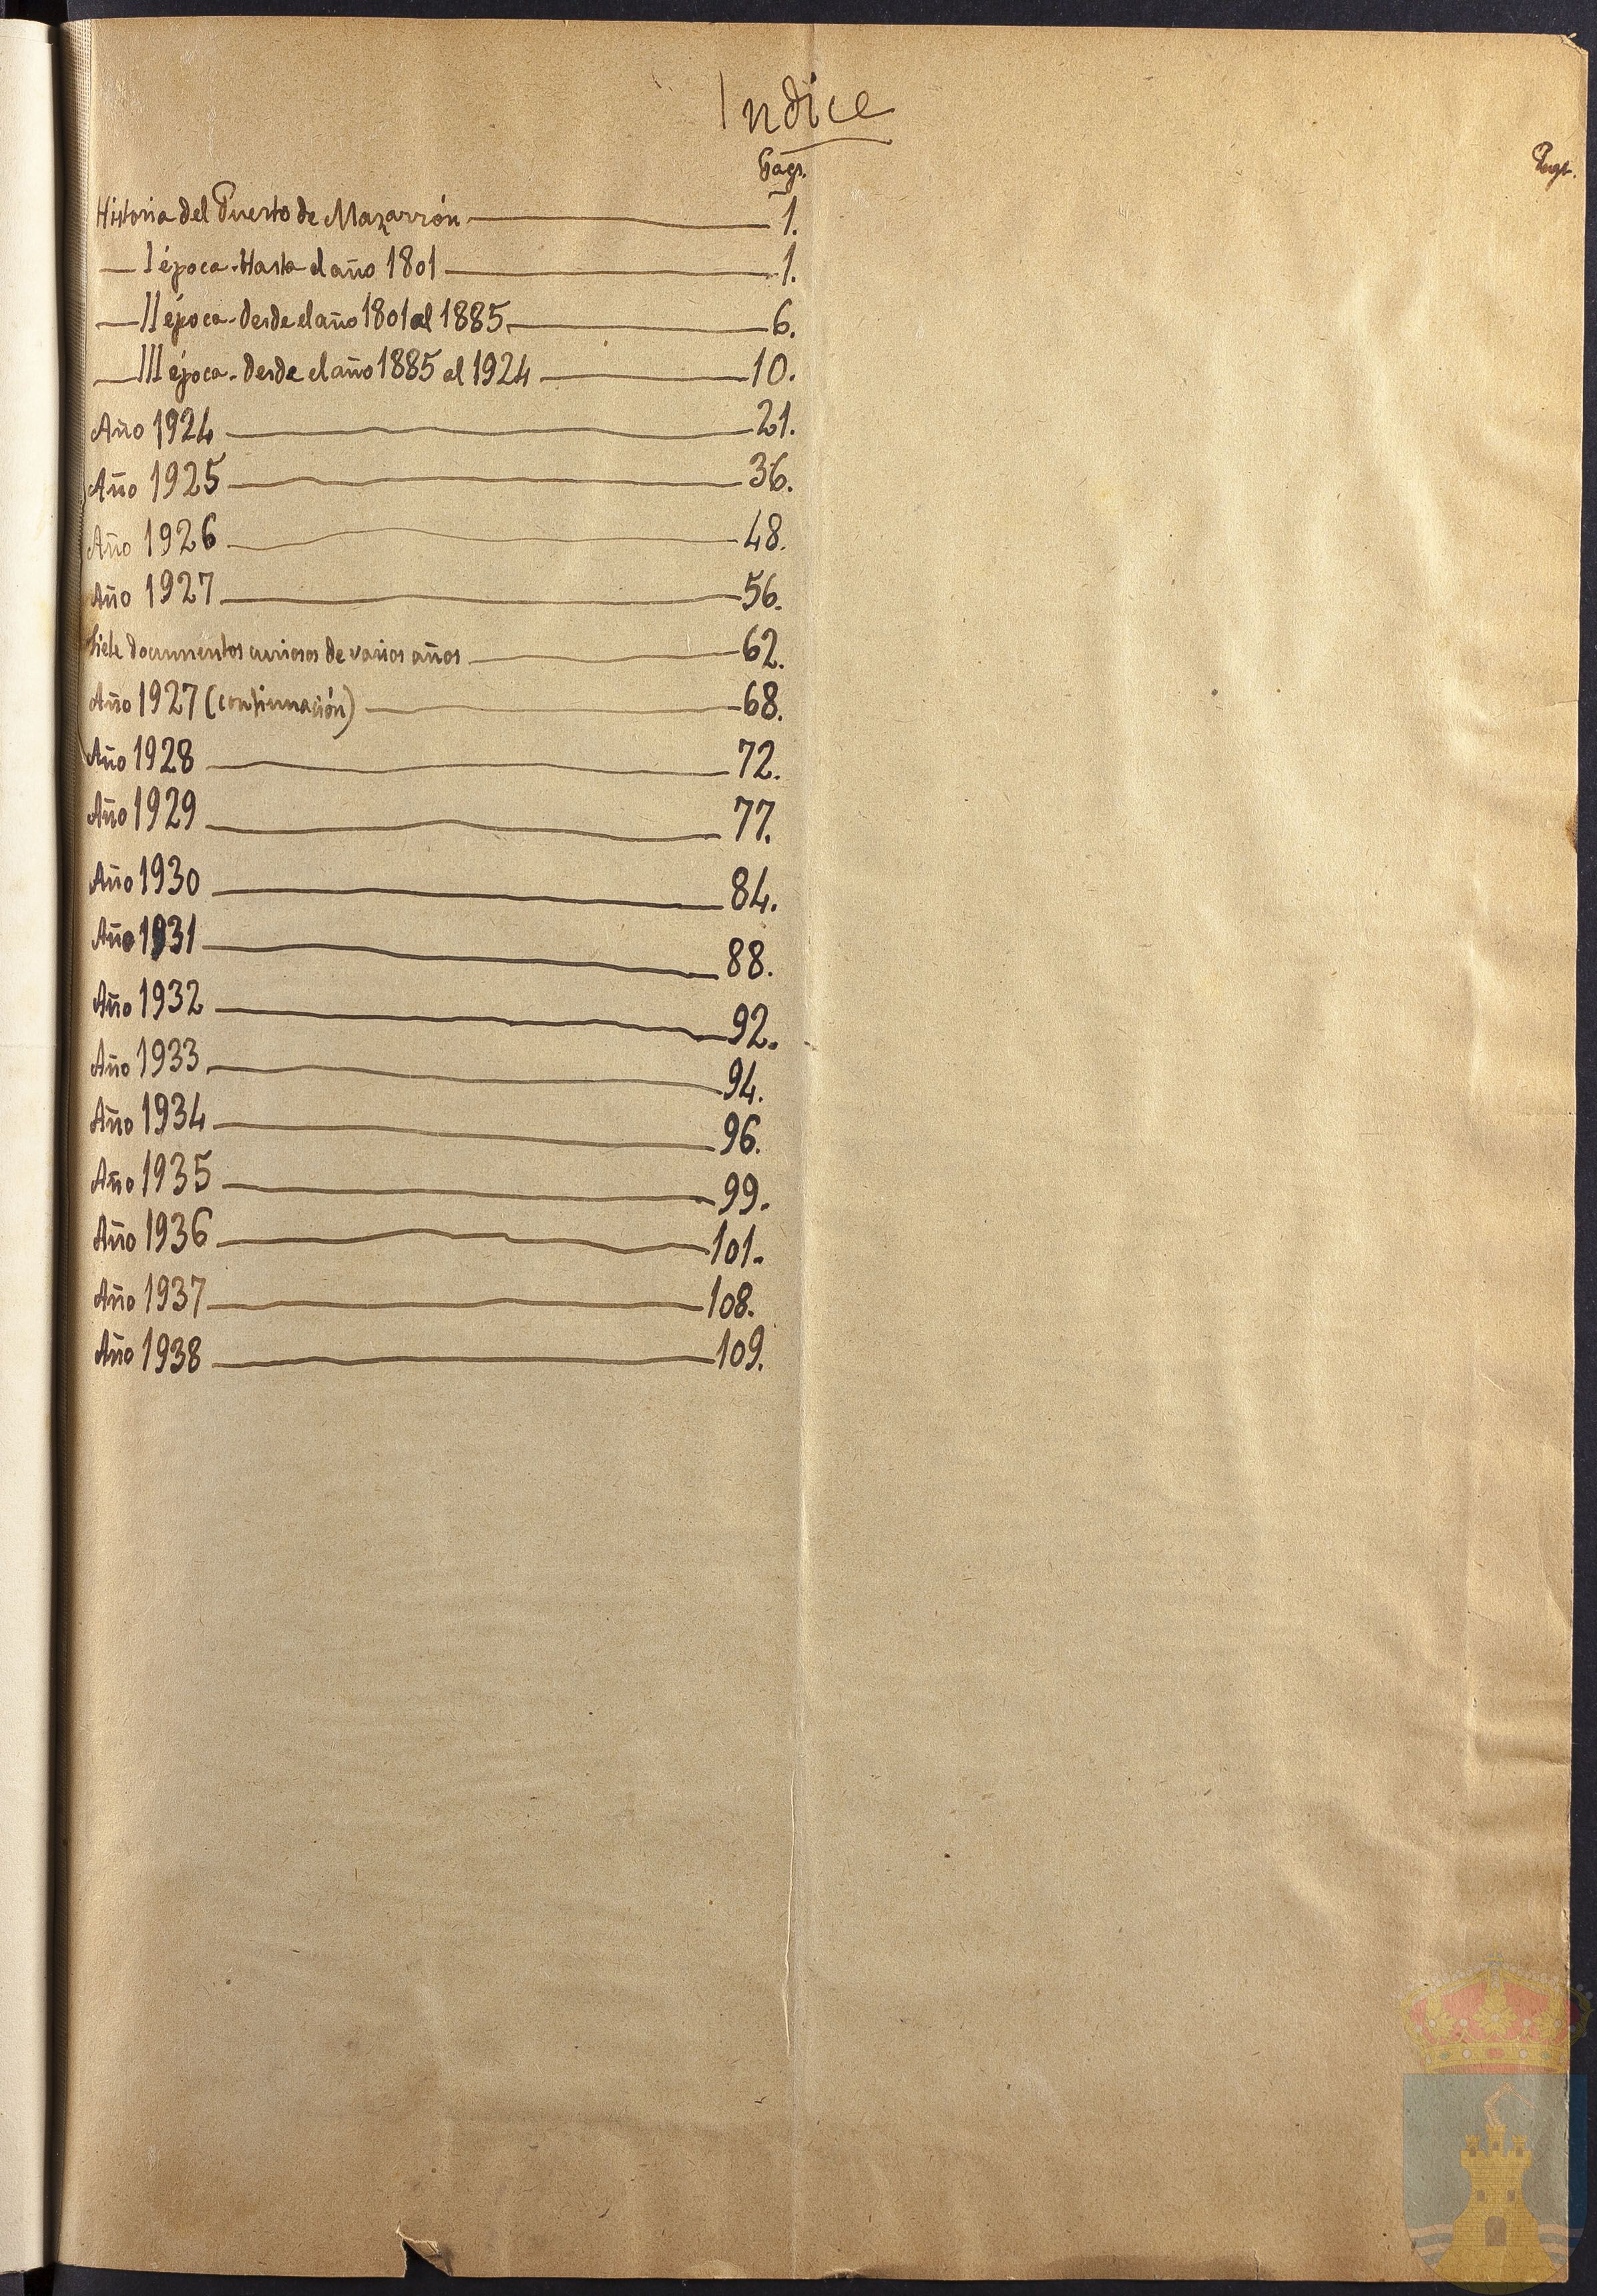 Indice
Págs.
Págs.
Historia del Puerto de Mazarrón 1.
I época - Hasta el año 1801 1.
II época - desde el año 1801 al 1885 6.
III época - desde el año 1885 al 1924 10.
Año 1924 21.
Año 1925 36.
Año 1926 48.
Año 1927 56.
Siete documentos curiosos de varios años 62.
Año 1927 (continuación) 68.
Año 1928 72.
Año 1929 77.
Año 1930 84.
Año 1931 88.
Año 1932 92.
Año 1933 94.
Año 1934 96.
Año 1935 99.
Año 1936 101.
Año 1937 108.
Año 1938 109.